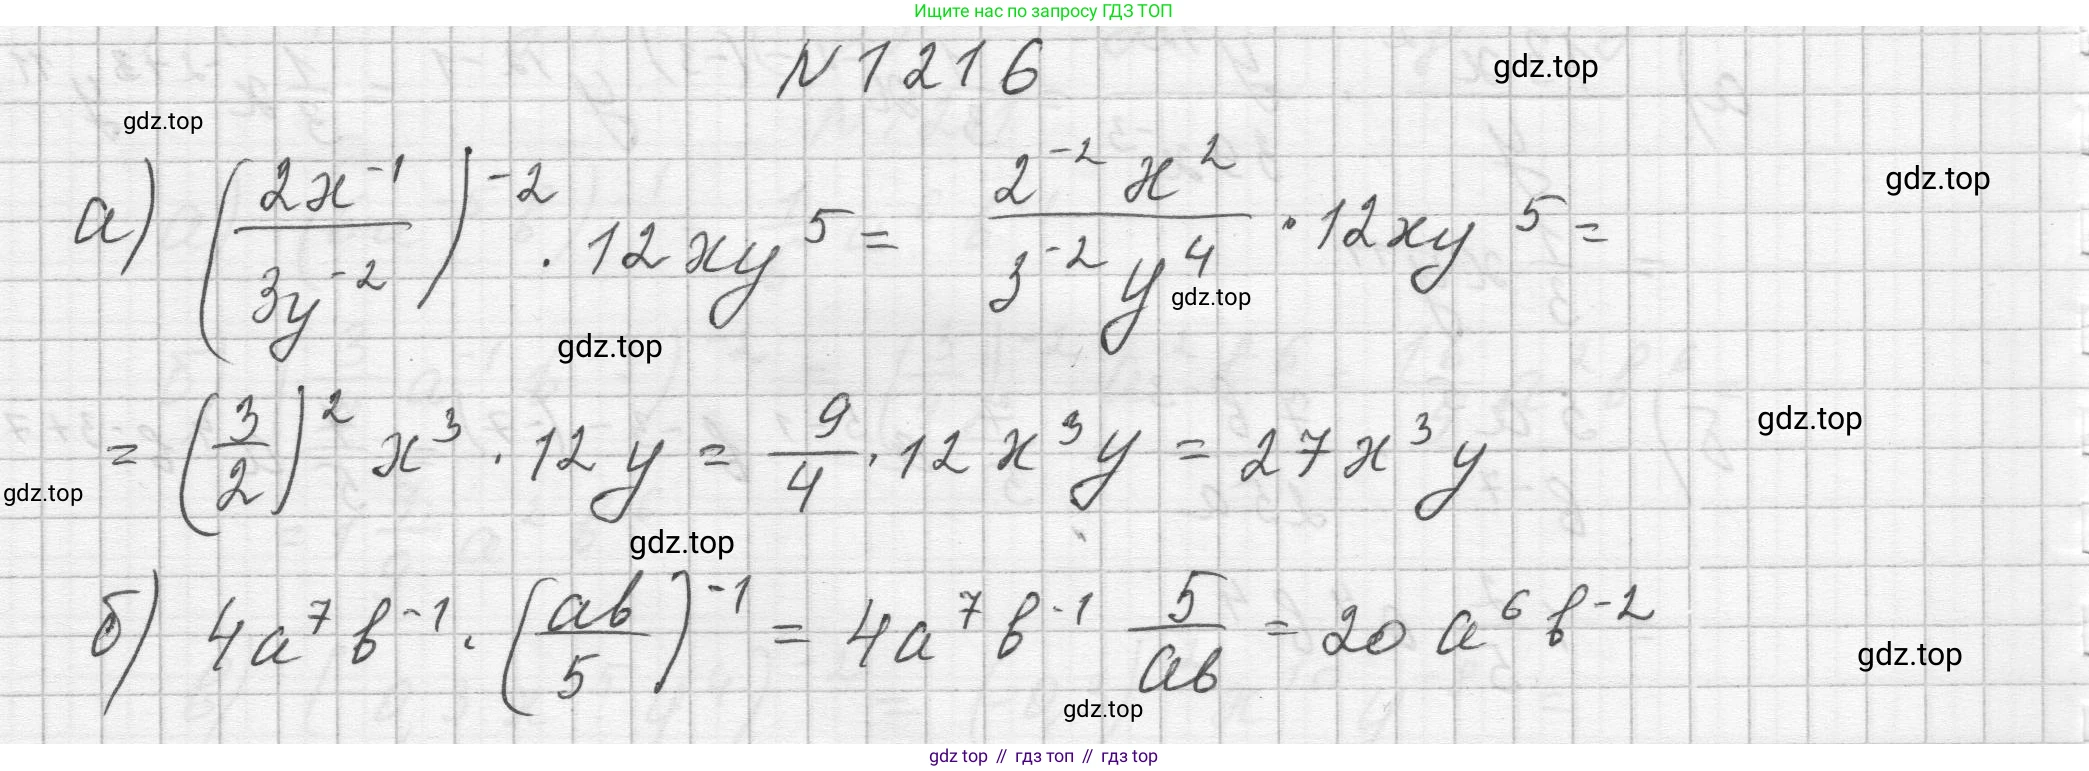 Ищите нас по запросу ГДЗ ТОП
N 1216
gdz.top
gdz.top
а) (2x⁻¹/3y⁻²)⁻² · 12xy⁵ = 2⁻²x²/3⁻²y⁴ · 12xy⁵ =
gdz.top
gdz.top
gdz.top
= (3/2)² x³ · 12y = 9/4 · 12x³y = 27x³y
gdz.top
gdz.top
gdz.top
б) 4a⁷b⁻¹ · (ab/5)⁻¹ = 4a⁷b⁻¹ 5/ab = 20a⁶b⁻²
gdz.top
gdz.top
gdz top // гдз топ // гдз top